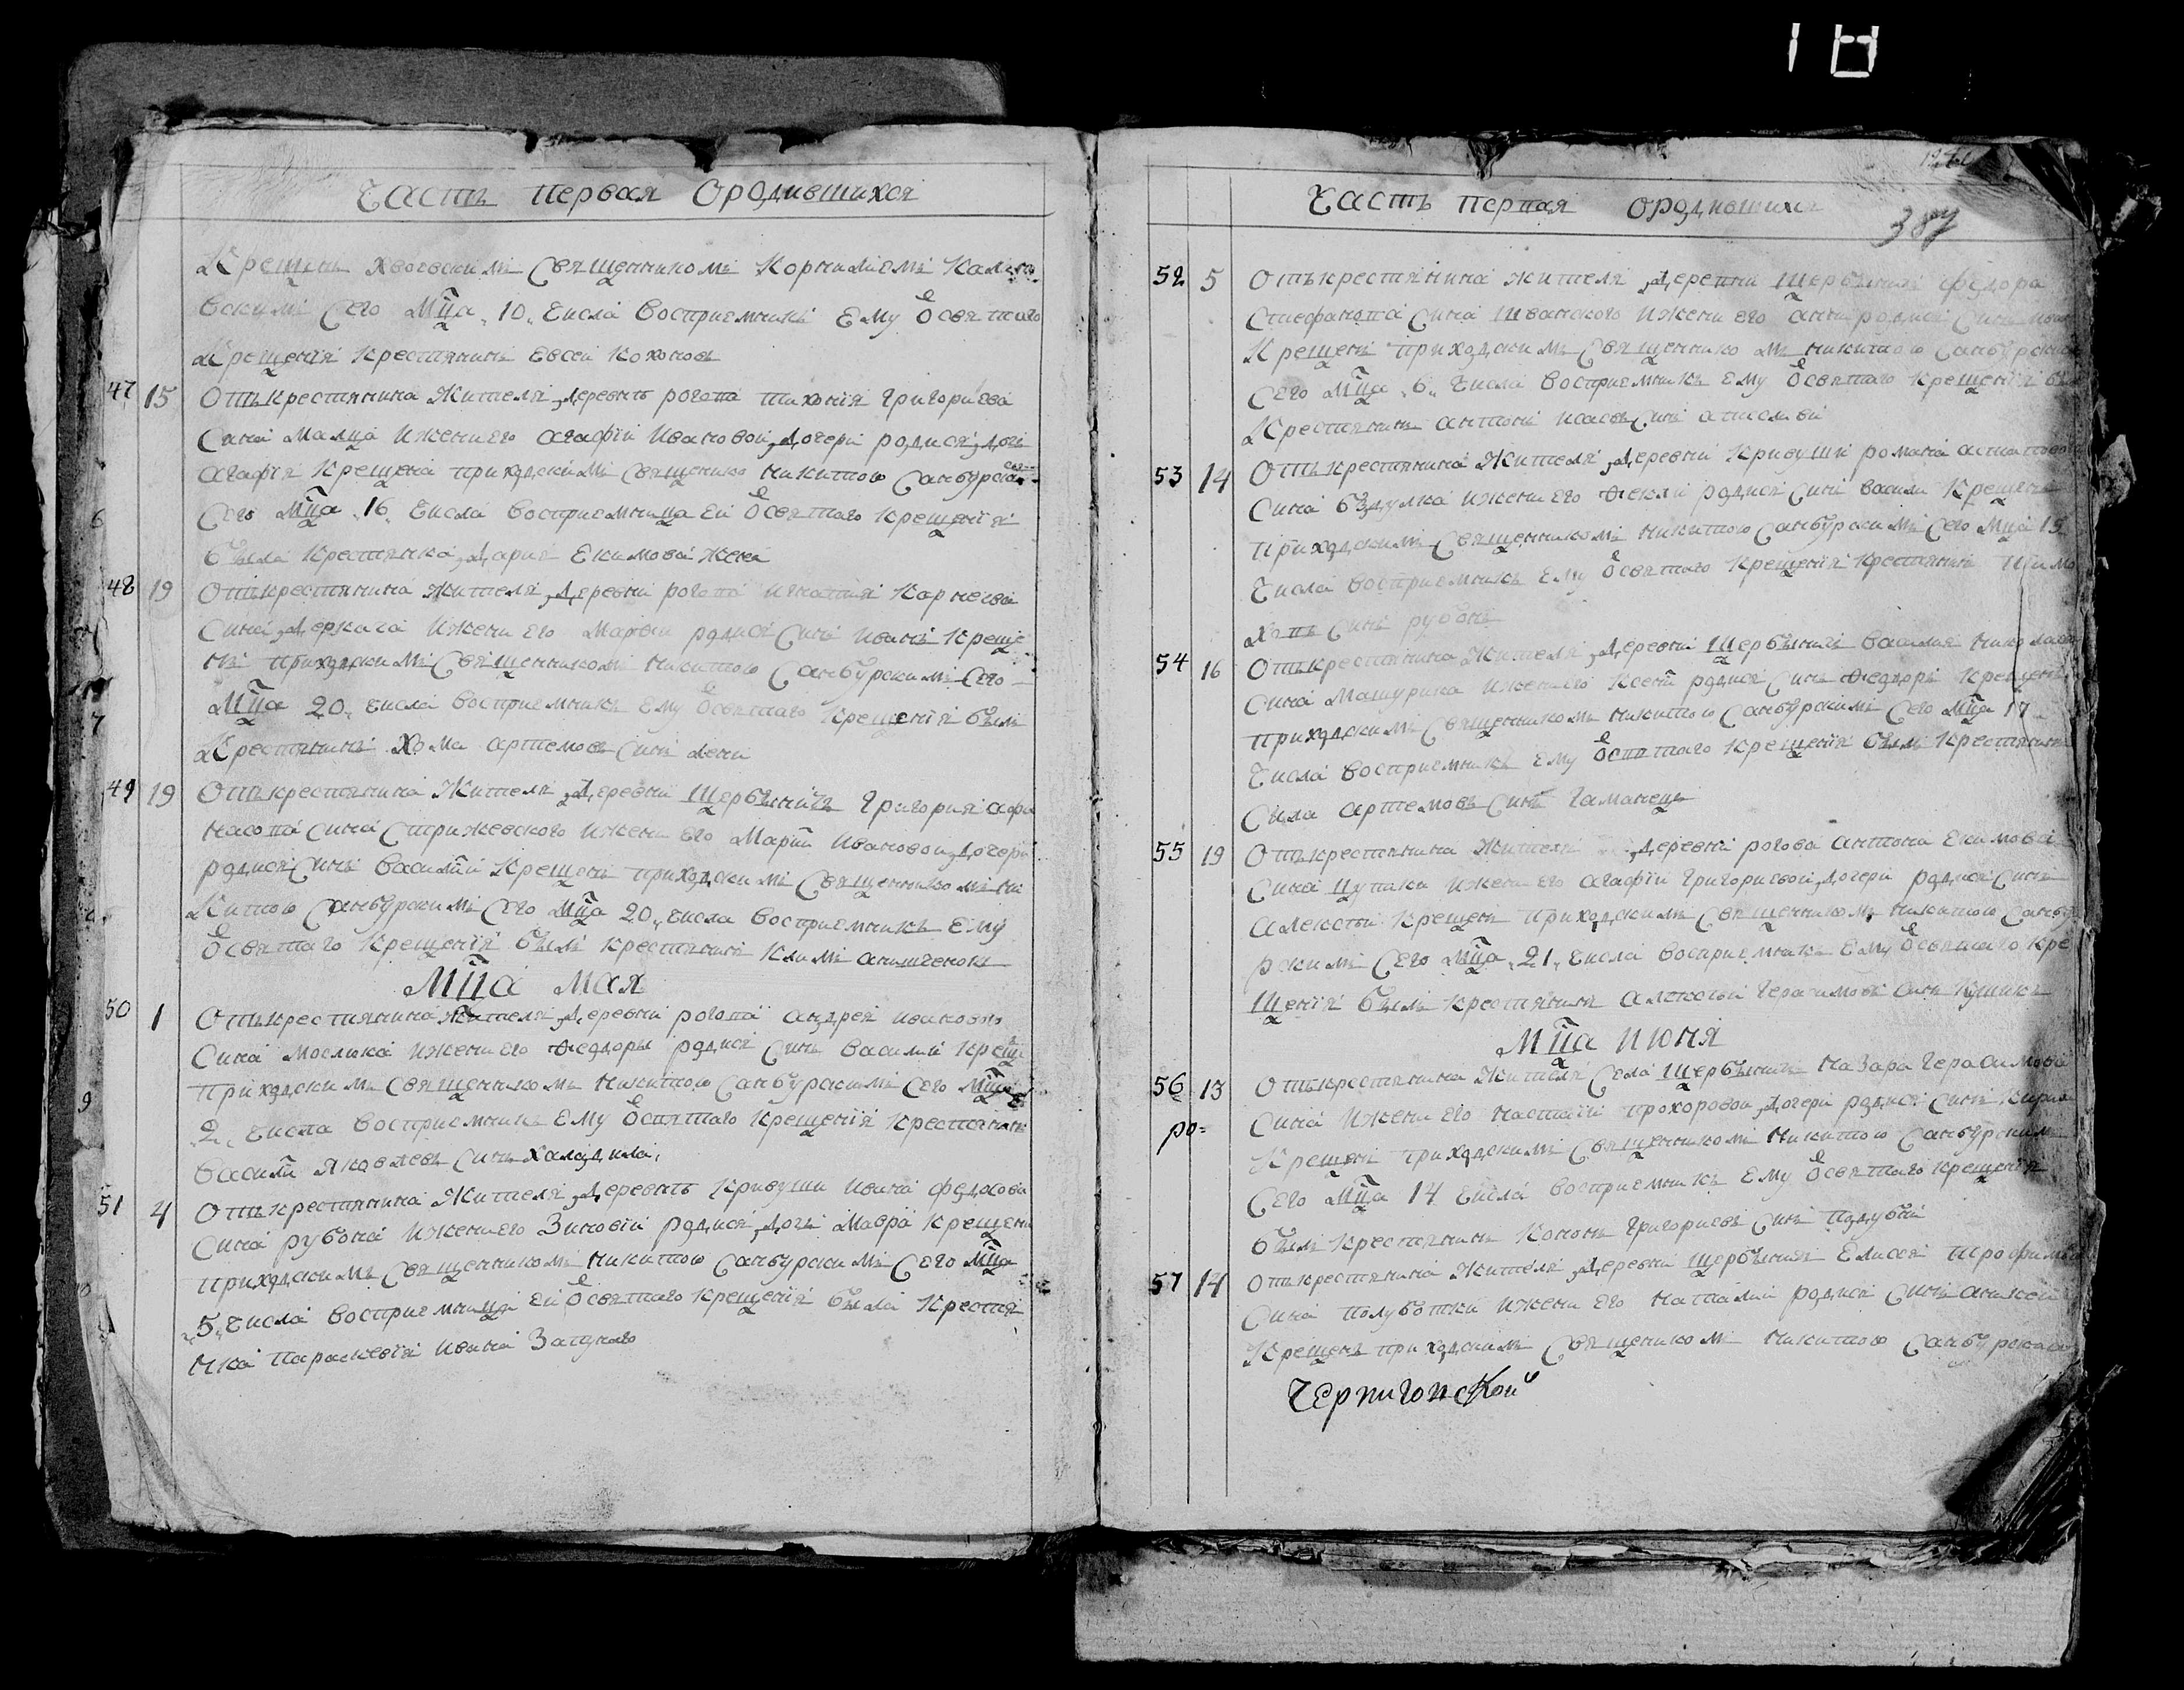 Часть первая Ородившихся
Крещенъ хвоевскимъ Священникомъ Корнилиемъ
вскимъ Сего мц̃а 10 Числа Восприемникъ Ему ѿ Святаго
Крещения Крестянинъ Евсей Кохоновъ
47 15 Отъ Крестянина Жителя Деревнѣ рогова тихония Григориева
Сина Малца Ижени его агафии Ивановой Дочери родися дочь
агафия Крещена приходскимъ Священнико никитою Самбурски
Сего мц̃а 16 Числа Восприемница Ей ѿ Святаго Крещения
была Крестянка Дария Екимова жена
48 19 Отъ Крестянина Жителя Деревни рогова игнатия Карнеева
Сина Держача Ижени его Марфи родися Синъ иванъ Креще
нъ приходскимъ Священникомъ никитою Самбурскимъ Сего
мц̃а 20 числа Восприемникъ Ему ѿ Святаго Крещения былъ
Крестянинъ Хома артемовъ Синъ
49 19 Отъ крестянина Жителя Деревни Щербыничъ Григория афа
насова Сина Стрижевского Ижени его Марии Ивановой Дочери
родися Синъ Василий Крещенъ приходскимъ Священникомъ ни
Китою Самбурскимъ Сего мц̃а 20 числа Восприемникъ Ему
ѿ Святаго Крещения былъ крестянинъ Климъ анищенокъ
Мц̃а мая
50 1 Отъ крестянина Жителя Деревни рогова андрея ивановъ
Сина Мослюка Ижени Его Федоры родися Синъ Василий Креще
приходскимъ Священникомъ никитою Самбурскимъ Сего мц̃а
2 числа Восприемникъ Ему ѿ Святаго Крещения Крестянинъ
Василий Яковлевъ Синъ Халодила
51 4 Отъ крестянина Жителя Деревнѣ Кривуши ивана
Сина рубана Ижени его Зиновии родися Дочь Мавра Крещена
приходскимъ Священникомъ никитою Самбурскимъ Сего мц̃а
5 числа Восприемница ей ѿ Святаго Крещения была Крестя
нка Параскевия ивана
Часть первая ородившихся
387
52 5 Отъ крестянина жителя Деревни Щербыничъ федора
Стефанова Сина Иванского Ижени его анни родися Синъ иванъ
Крещенъ приходскимъ Священникомъ никитою Самбурскимъ
Сего мц̃а 6 Числа Восприемникъ Ему ѿ Святаго Крещения
Крестянинъ антонъ
53 14 Отъ крестянина Жителя Деревни Кривуши романа
Сина Ижени его Фекли родися Синъ Васили Крещенъ
приходскимъ Священникомъ никитою Самбурскимъ Сего мц̃а 15
Числа Восприемникъ Ему ѿ Святаго Крещения Крестянинъ
Синъ рубанъ
54 16 Отъ крестянина Жителя Деревни Щербыничъ Василия
Сина Мацурика Ижени его Ксени родися Синъ Федоръ Крещенъ
приходскимъ Священникомъ никитою Самбурскимъ Сего мц̃а 17
Числа Восприемникъ Ему ѿ Святаго Крещения былъ Крестянинъ
Сила артемовъ Синъ Гаманецъ
55 19 Отъ крестянина Жителя Деревни рогова антона Екимова
Сина Цупаки Ижени его агафии Григориевой Дочери родися Синъ
алексѣй Крещенъ приходскимъ Священникомъ никитою Самбу
рскимъ Сего мц̃а 21 числа восприемникъ Ему ѿ Святаго Кре
щения былъ Крестянинъ алексѣй Герасимовъ Синъ
Мц̃а июня
56 13 Отъ крестянина Жителя Села Щербыничъ назара Герасимова
ро= Сина Ижени его настасии прохоровой Дочери родися Синъ
Крещенъ приходскимъ Священникомъ никитою Самбурскимъ
Сего мц̃а 14 Числа восприемникъ Ему ѿ Святаго Крещения
былъ Крестянинъ Кононъ Григориевъ Синъ
57 14 Отъ крестянина Жителя Деревни Щербыничъ Елисея
Сина полуботки Ижени его наталии родися Синъ
Крещенъ приходскимъ Священикомъ никитою Самбурским
Черниговской